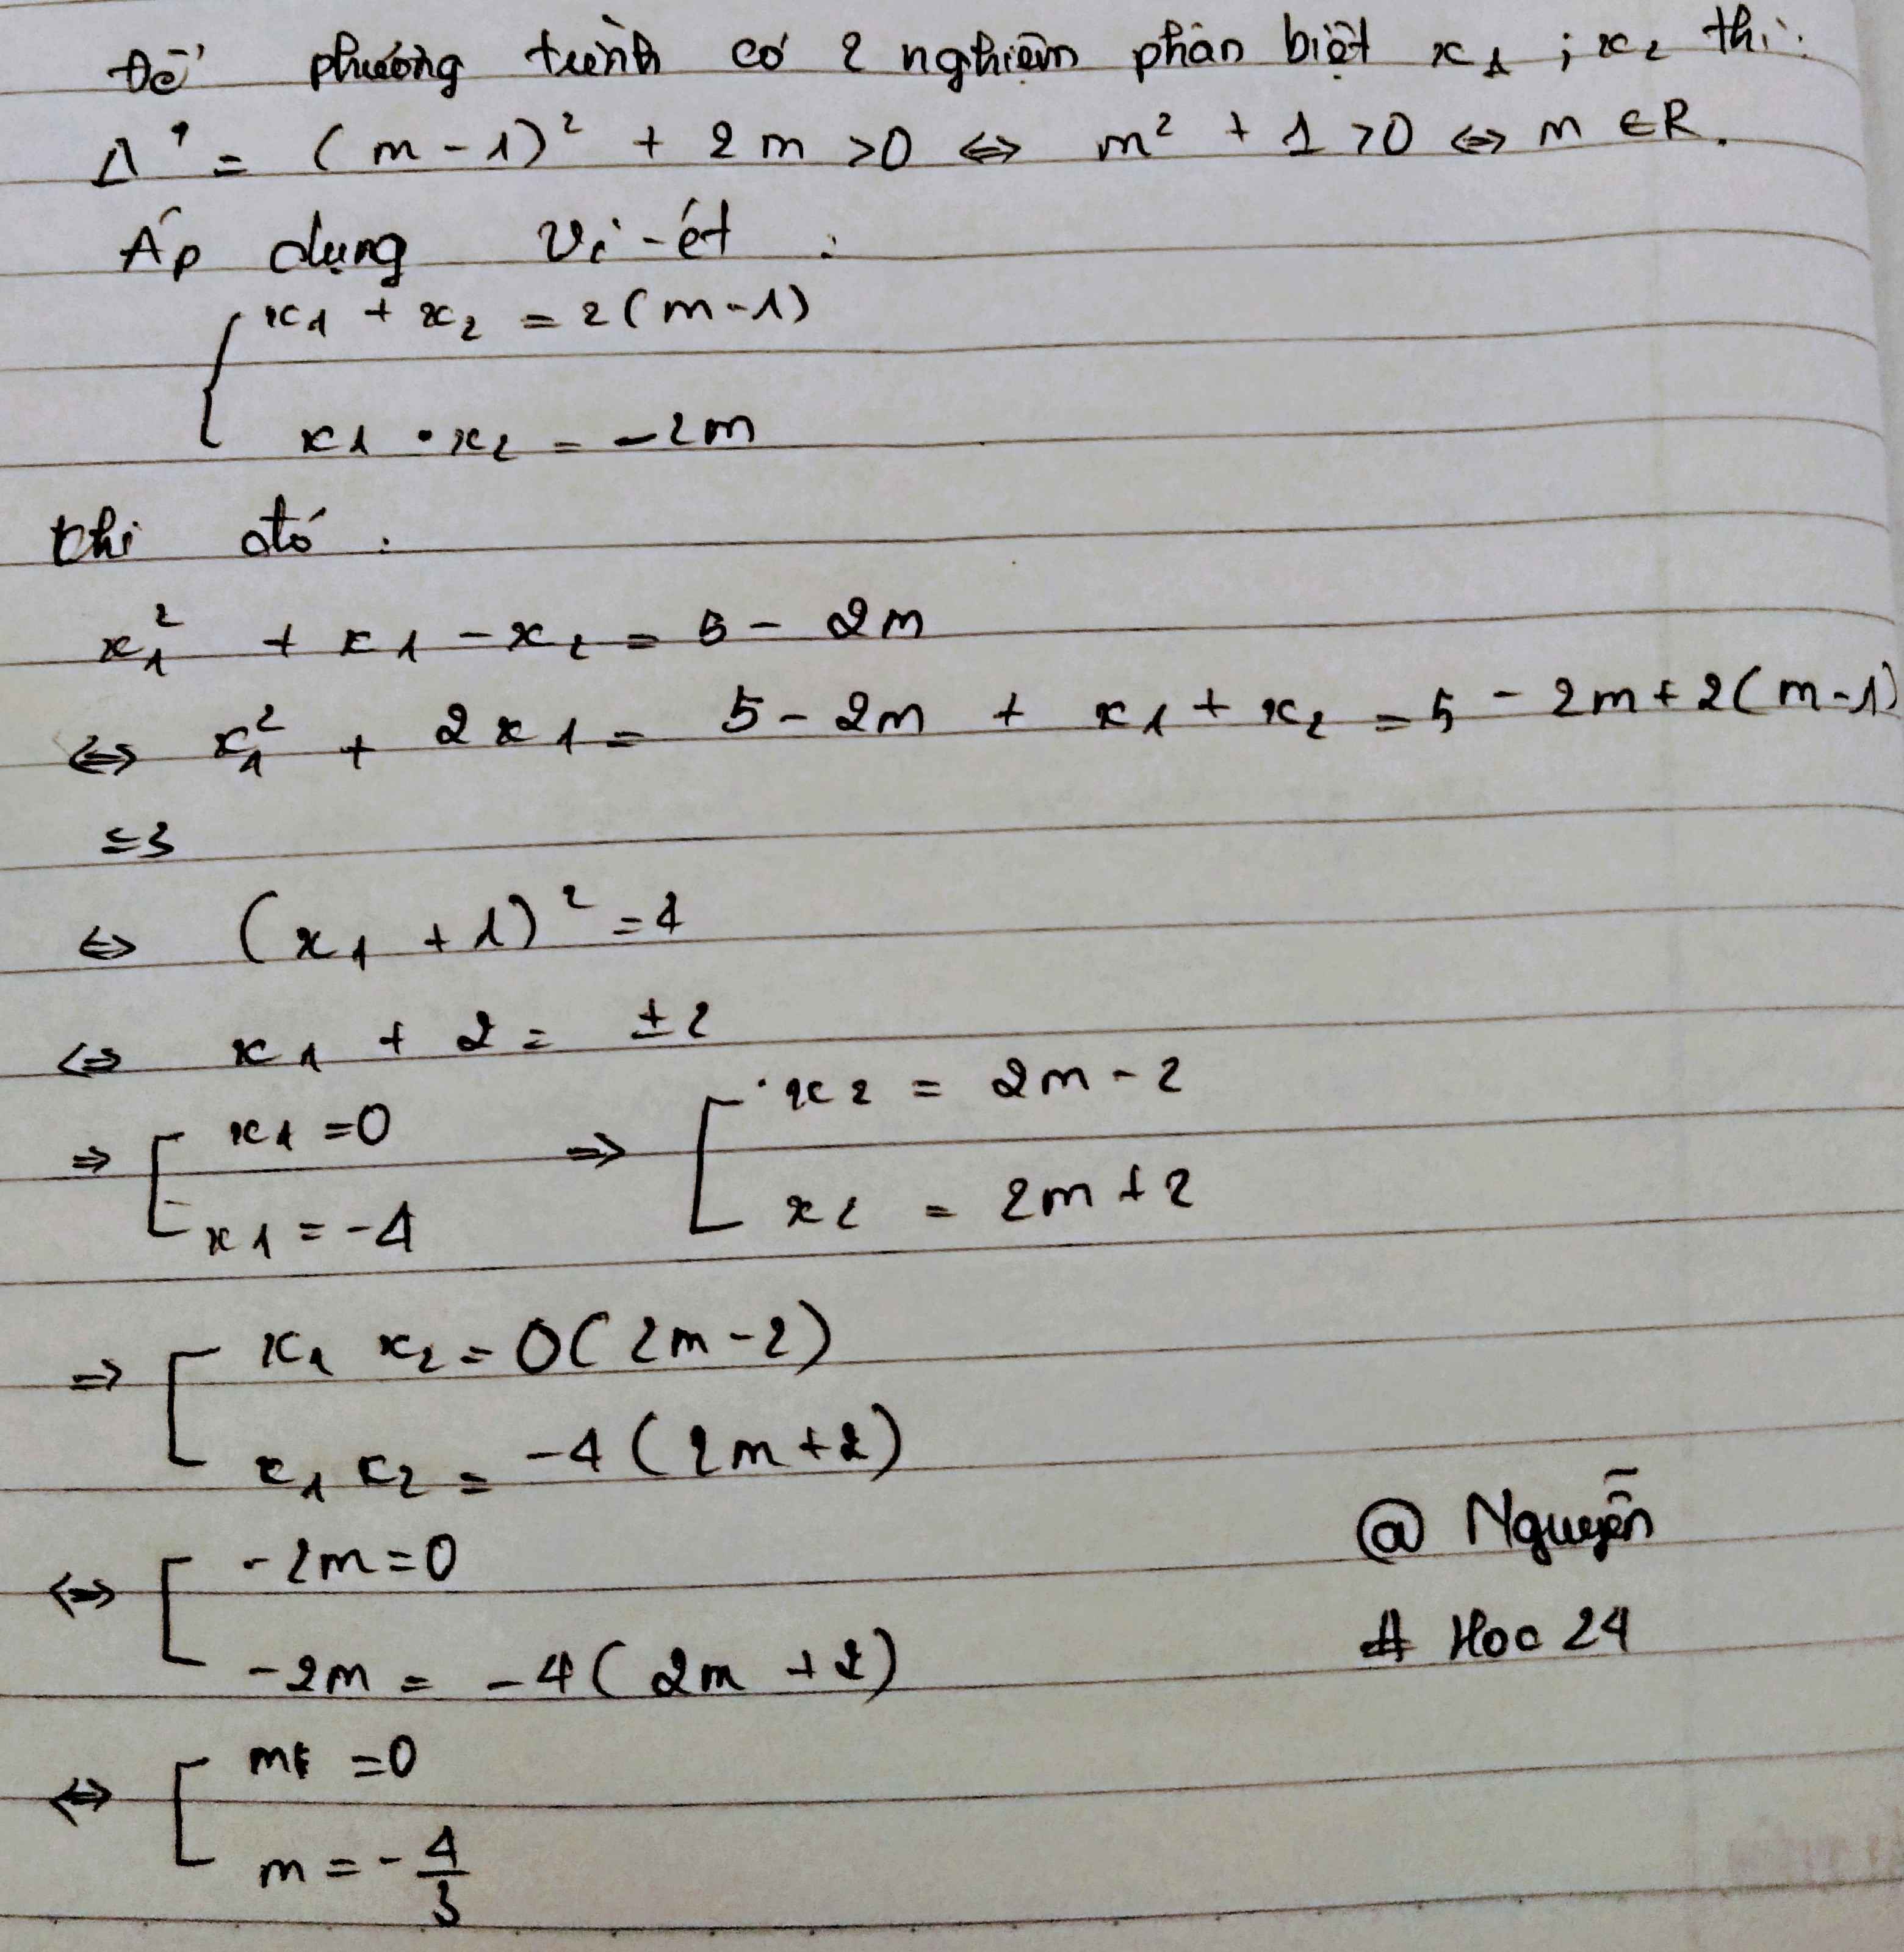 Để phương trình có 2 nghiệm phân biệt x₁ ; x₂ thì:
Δ' = (m-1)² + 2m >0 ⇔ m² + 1 >0 ⇔ m ∈R.
Áp dụng Vi-ét :
x₁ + x₂ = 2(m-1)
x₁ . x₂ = -2m
khi đó :
x₁² + x₁ - x₂ = 5 - 2m
⇔ x₁² + 2x₁ = 5 - 2m + x₁ + x₂ = 5 - 2m + 2(m-1)
=3
⇔ (x₁ + 1)² = 4
⇔ x₁ + 2 = ±2
⇒ [ x₁ =0 ⇒ [ x₂ = 2m - 2
x₁ = -4 x₂ = 2m + 2
⇒ [ x₁ x₂ = 0(2m-2)
x₁ x₂ = -4(2m+2)
⇔ [ -2m=0
-2m = -4(2m +2)
@ Nguyễn
# Hoc 24
⇔ [ m =0
m = -4/3